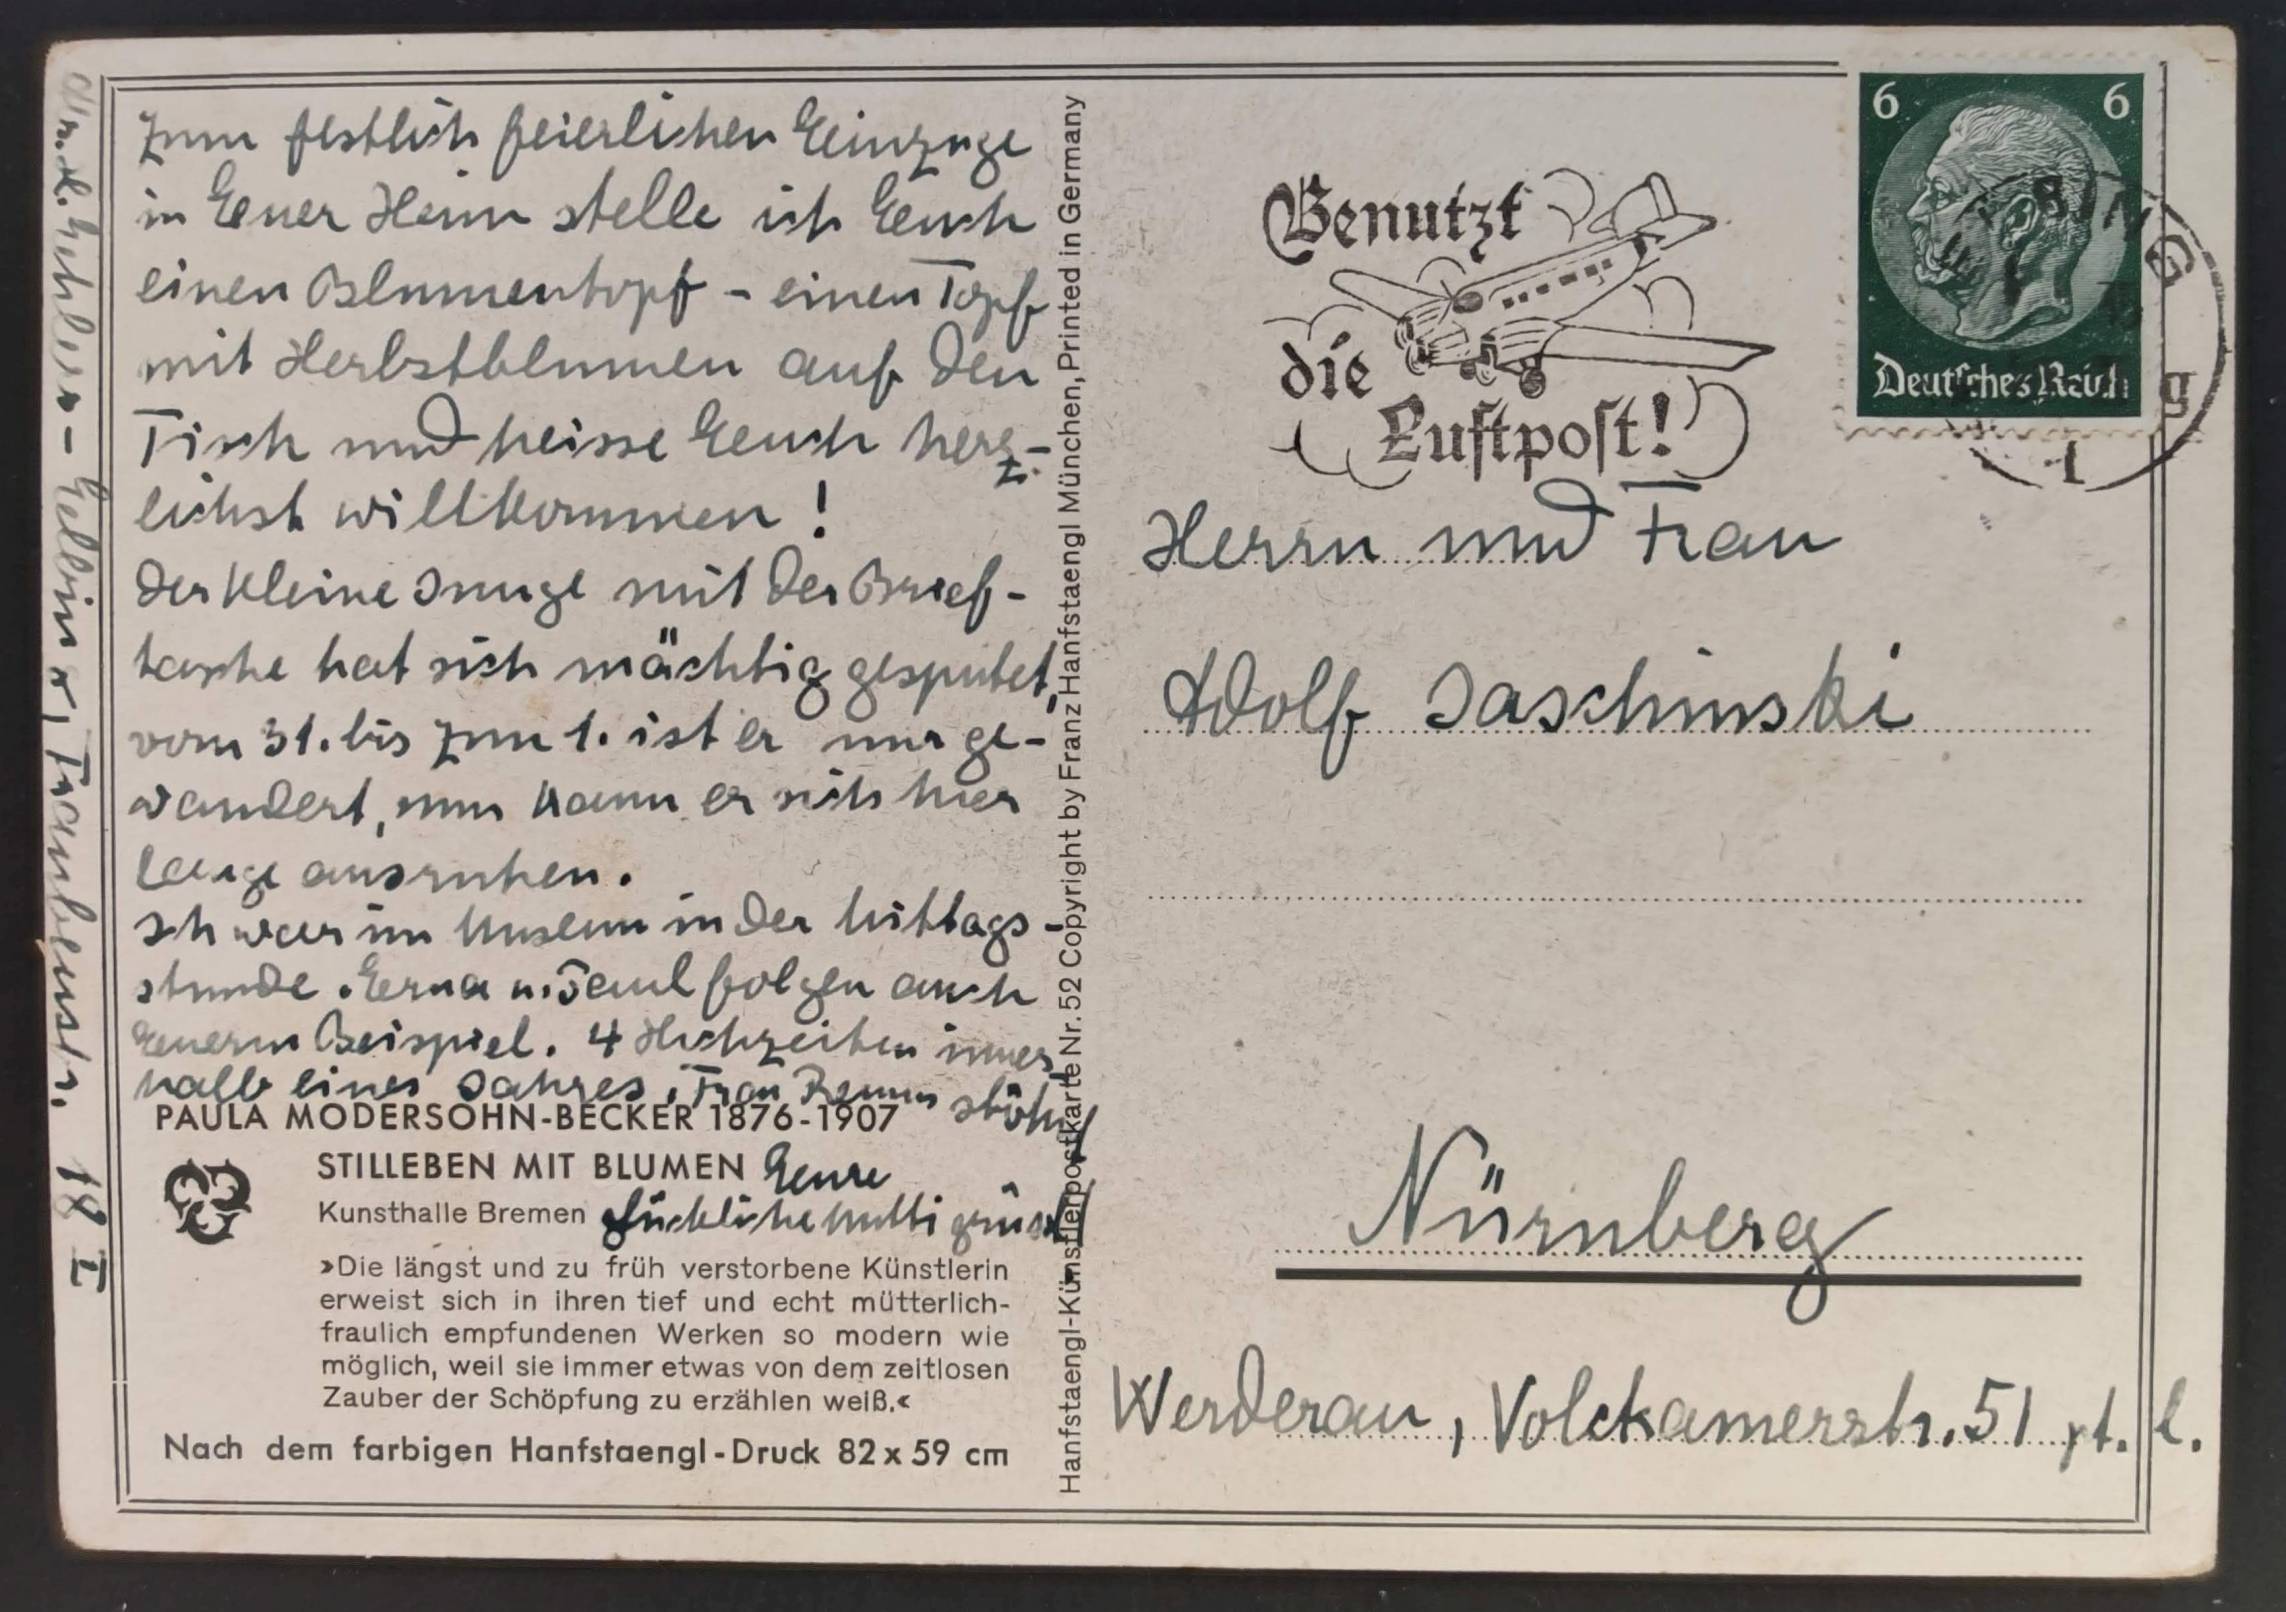 Zum festlich feierlichen Einzuge
in Euer Heim stelle ich Euch
einen Blumentopf - einen Topf
mit Herbstblumen auf den
Tisch und heisse Euch herz-
lichst willkommen!
Der kleine Junge mit der Brief-
tasche hat sich mächtig gesputet,
vom 31. bis zum 1. ist er nur ge-
wandert, nun kann er sich hier
lange ausruhen.
Ich war im Museum in der Mittags-
stunde. Erna u. Paul folgen auch
Euerm Beispiel. 4 Hochzeiten inner
halb eines Jahres, Frau stöhnt
Eure
glückliche Mutti grüsst
PAULA MODERSOHN-BECKER 1876-1907
STILLEBEN MIT BLUMEN
Kunsthalle Bremen
»Die längst und zu früh verstorbene Künstlerin
erweist sich in ihren tief und echt mütterlich-
fraulich empfundenen Werken so modern wie
möglich, weil sie immer etwas von dem zeitlosen
Zauber der Schöpfung zu erzählen weiß.«
Nach dem farbigen Hanfstaengl-Druck 82 x 59 cm
Elbing, Traubenstr. 18 I
Hanfstaengl-Künstlerpostkarte Nr. 52 Copyright by Franz Hanfstaengl München, Printed in Germany
Benutzt
die
Luftpost!
6 6
Deutsches Reich
Herrn und Frau
Adolf Jaschinski
Nürnberg
Werderau, Volckamerstr. 51 pt. l.